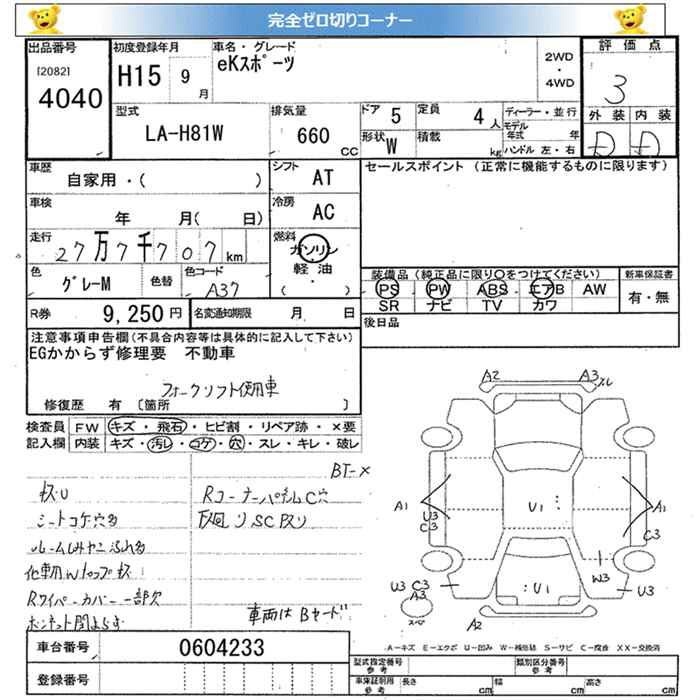 完全ゼロ切りコーナー
出品番号
[2082]
4040
初度登録年月
H15 9 月
車名・グレード
eKスポーツ
2WD
・
4WD
評価点
3
外装 内装
D D
型式
LA-H81W
排気量
660 CC
ドア 5
定員 4 人
形状 W
積載 kg
ディーラー・並行
モデル年式 年
ハンドル 左・右
車歴
自家用・( )
シフト AT
セールスポイント (正常に機能するものに限ります)
車検 年 月( 日)
冷房 AC
走行 27万7千707 km
燃料
ガソリン
軽油
( ・ )
色 グレーM
色替
色コード A37
装備品(純正品に限り○をつけてください)
PS PW ABS エアB AW
SR ナビ TV カワ
新車保証書
有・無
R券 9,250 円
名変通知期限 月 日
後日品
注意事項申告欄(不具合内容等は具体的に記入して下さい)
EGかからず修理要 不動車
フォークリフト使用車
修復歴 有 [箇所 ]
検査員記入欄
FW キズ・飛石・ヒビ割・リペア跡・×要
内装 キズ・汚レ・コゲ・穴・スレ・キレ・破レ
BT-×
シートコゲ穴多
Rコーナーパネル C穴
Rワイパーカバー一部欠
ボンネット開まらず
車両はBヤード
A2
A3
A1
U3
C3
U1
A1
C3
W3
U3
U3 C3
A3
スペア
U1
A2
A-キズ E-エクボ U-凹み W-補修跡 S-サビ C-腐食 XX-交換済
車台番号 0604233
登録番号
型式指定番号 参考
類別区分番号 参考
車庫証明用 参考
長さ cm
幅 cm
高さ cm